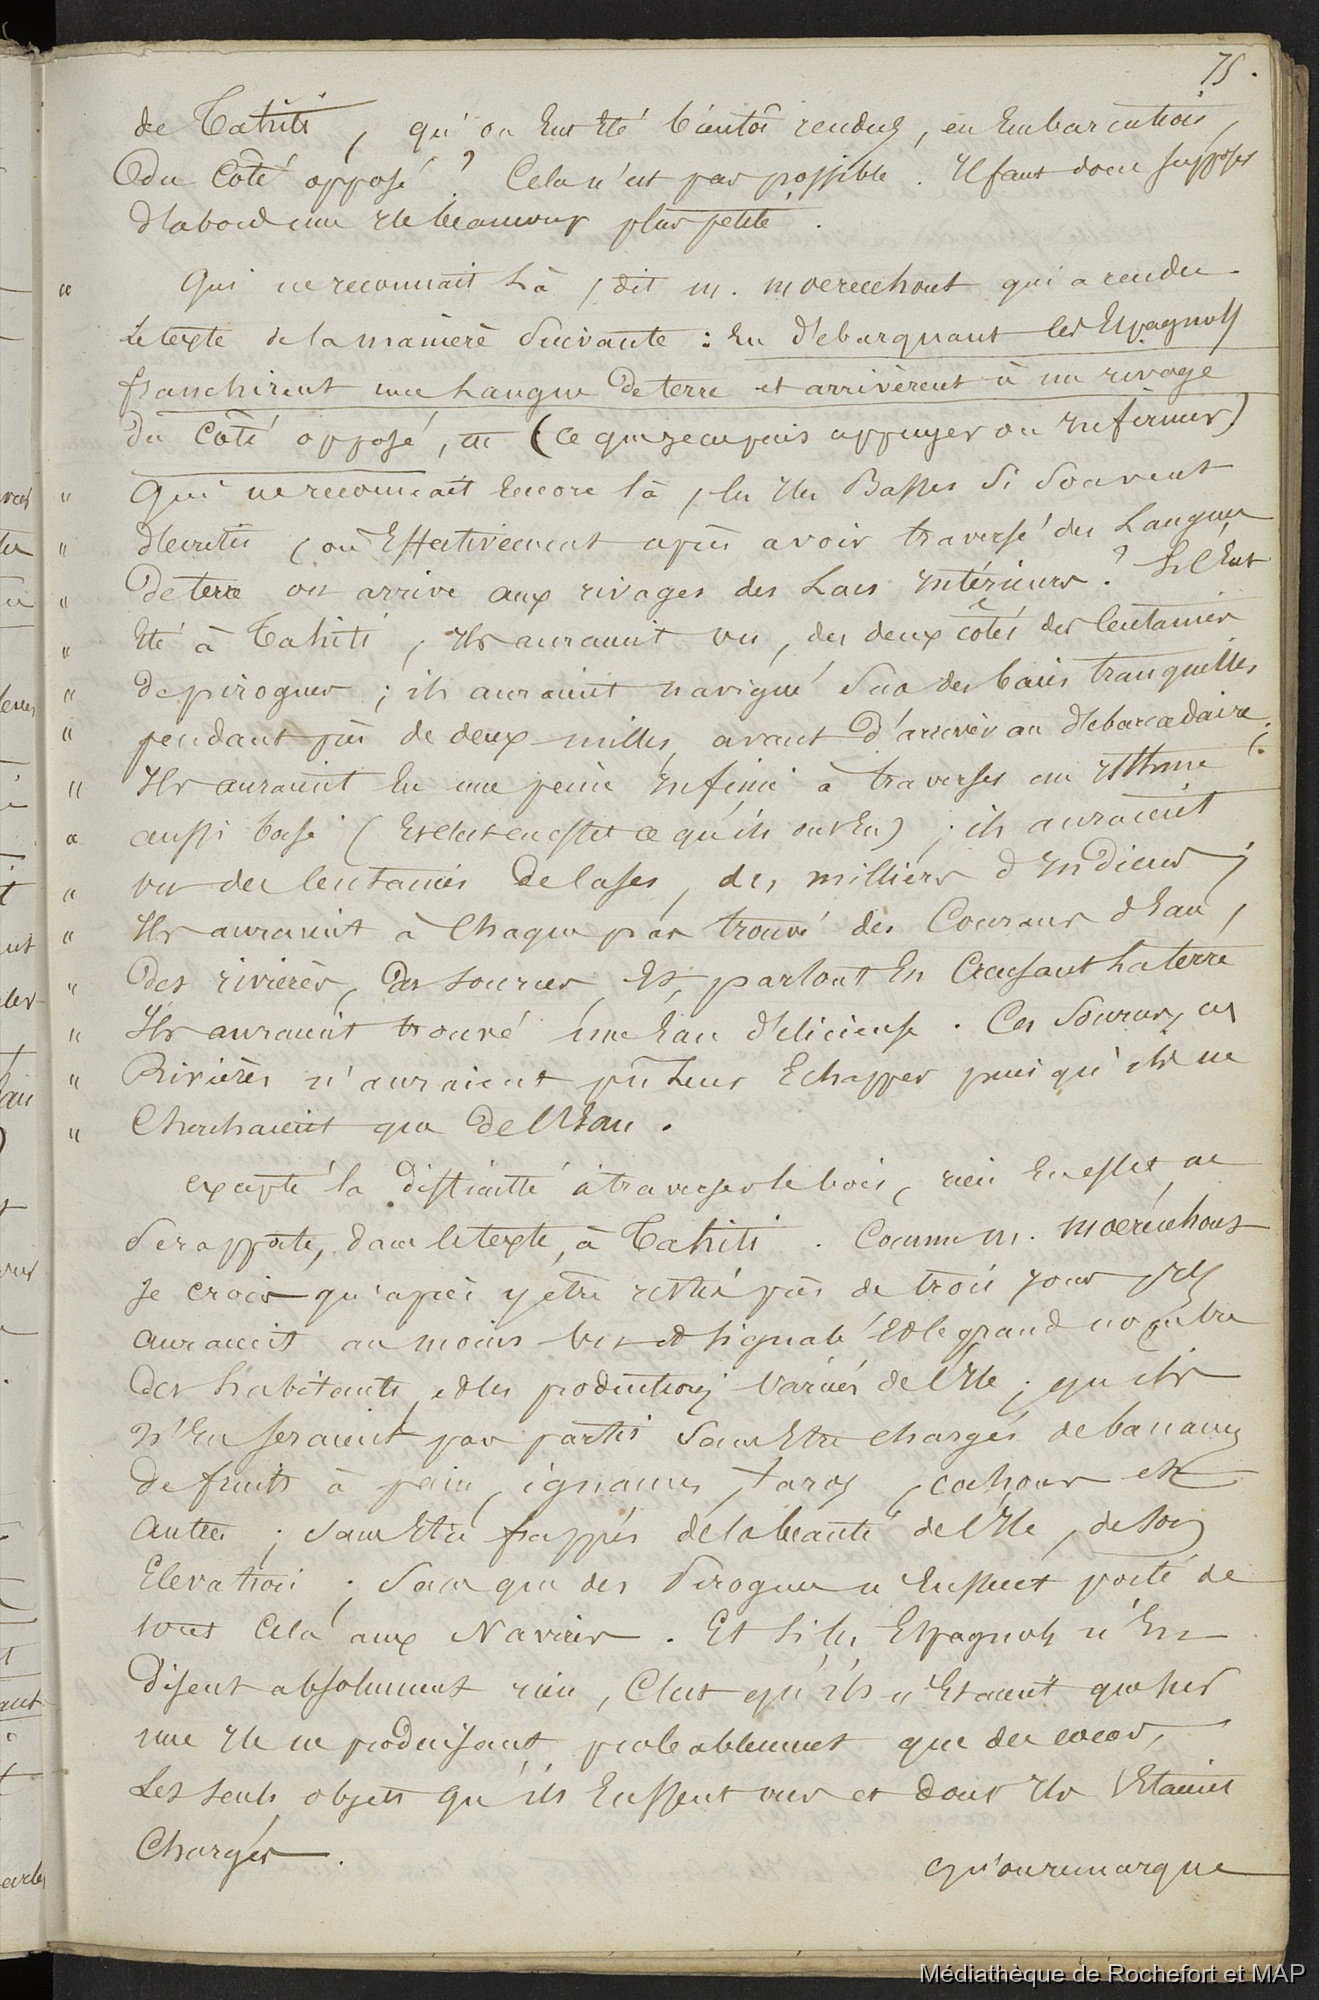 75.
de Tahiti, qu'on eut été bientôt rendus, en embarcation,
du côté opposé ? Cela n'est pas possible. Il faut donc supposer
d'abord une île beaucoup plus petite.
" Qui ne reconnait là, dit M. Moerenhout qui a rendu
le texte de la manière suivante : En débarquant les Espagnols
franchirent une langue de terre et arrivèrent à un rivage
du côté opposé, (ce que je ne puis appuyer ou infirmer)
" Qui ne reconnait encore là, les îles Basses si souvent
" décrites, où effectivement après avoir traversé des langues
" de terre on arrive aux rivages des lacs intérieurs ? S'il eut
" été à Tahiti, ils auraient vu, des deux côtés des centaines
" de pirogues ; ils auraient navigué sur des baies tranquilles
" pendant près de deux milles, avant d'arriver au débarcadaire ;
" Ils auraient eu une peine infinie à traverser un isthme
" aussi boisé (et c'est en effet ce qu'ils ont eu) ; ils auraient
" vu des centaines de cases, des milliers d'Indiens ;
" Ils auraient à chaque pas trouvé des cours d'eau,
" des rivières, des sources, et, partout en creusant la terre
" Ils auraient trouvé une eau délicieuse. Ces sources, ces
" Rivières n'auraient pû leur échapper puisqu'ils ne
" cherchaient que de l'eau.
excepté la difficulté à traverser le bois, rien en effet, ne
se rapporte, dans le texte, à Tahiti. Comme M. Moerenhout
je crois qu'après y être resté près de trois jours, ils
auraient au moins vu et signalé et le grand nombre
des habitants, et les productions variées de l'île ; qu'ils
n'en seraient pas partis sans être chargés de bananes
de fruits à pain, ignames, taros, cochons et
autres ; sans être frappés de la beauté de l'île, de son
élévation ; sans que des pirogues n'eussent porté de
tout cela aux Navires. Et si les Espagnols n'en
disent absolument rien, c'est qu'ils n'étaient que sur
une île ne produisant probablement que des cocos,
les seuls objets qu'ils eussent vus et dont ils s'étaient
chargés.
qu'on remarque
Médiathèque de Rochefort et MAP